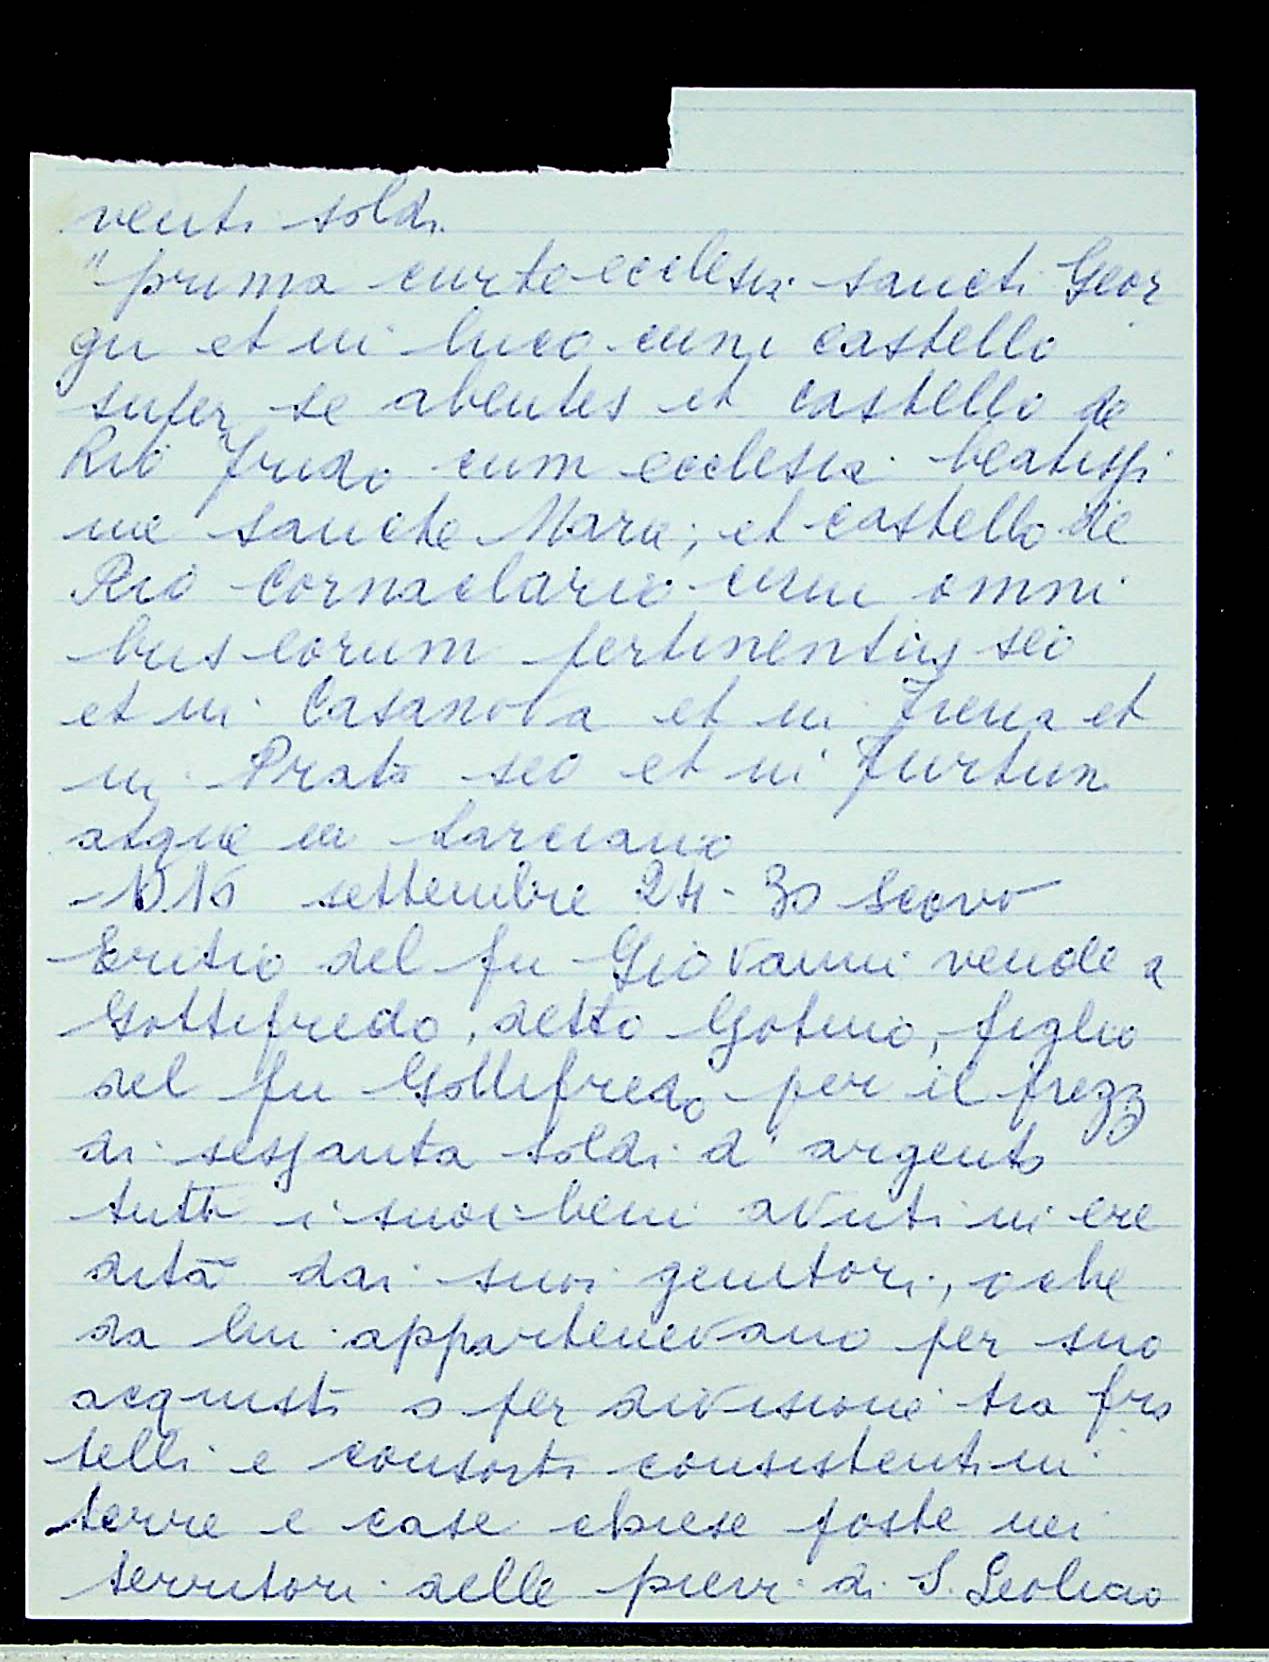 venti soldi.
"prima curte ecclesia sancti Geor
gii et in luco cum castello
super se abentes et castello de
Rio Frido cum ecclesia beatissi
me sancte Marie; et castello de
Rio Cornaclario cum omni
bus eorum pertinentiis seo
et in Casanova et in Frena et
in Prato seo et in
atque in Sarciano
settembre 24 - 30 Scovo
Eritio del fu Giovanni vende a
Gottifredo, detto Gotino, figlio
del fu Gottifredo per il prezzo
di sessanta soldi d'argento
tutti i suoi beni avuti in ere
dità dai suoi genitori, o che
a lui appartenevano per suo
acquisto o per divisione tra fra
telli e consorti consistenti in
terre e case chiese poste nei
territori delle pievi di S. Leolino